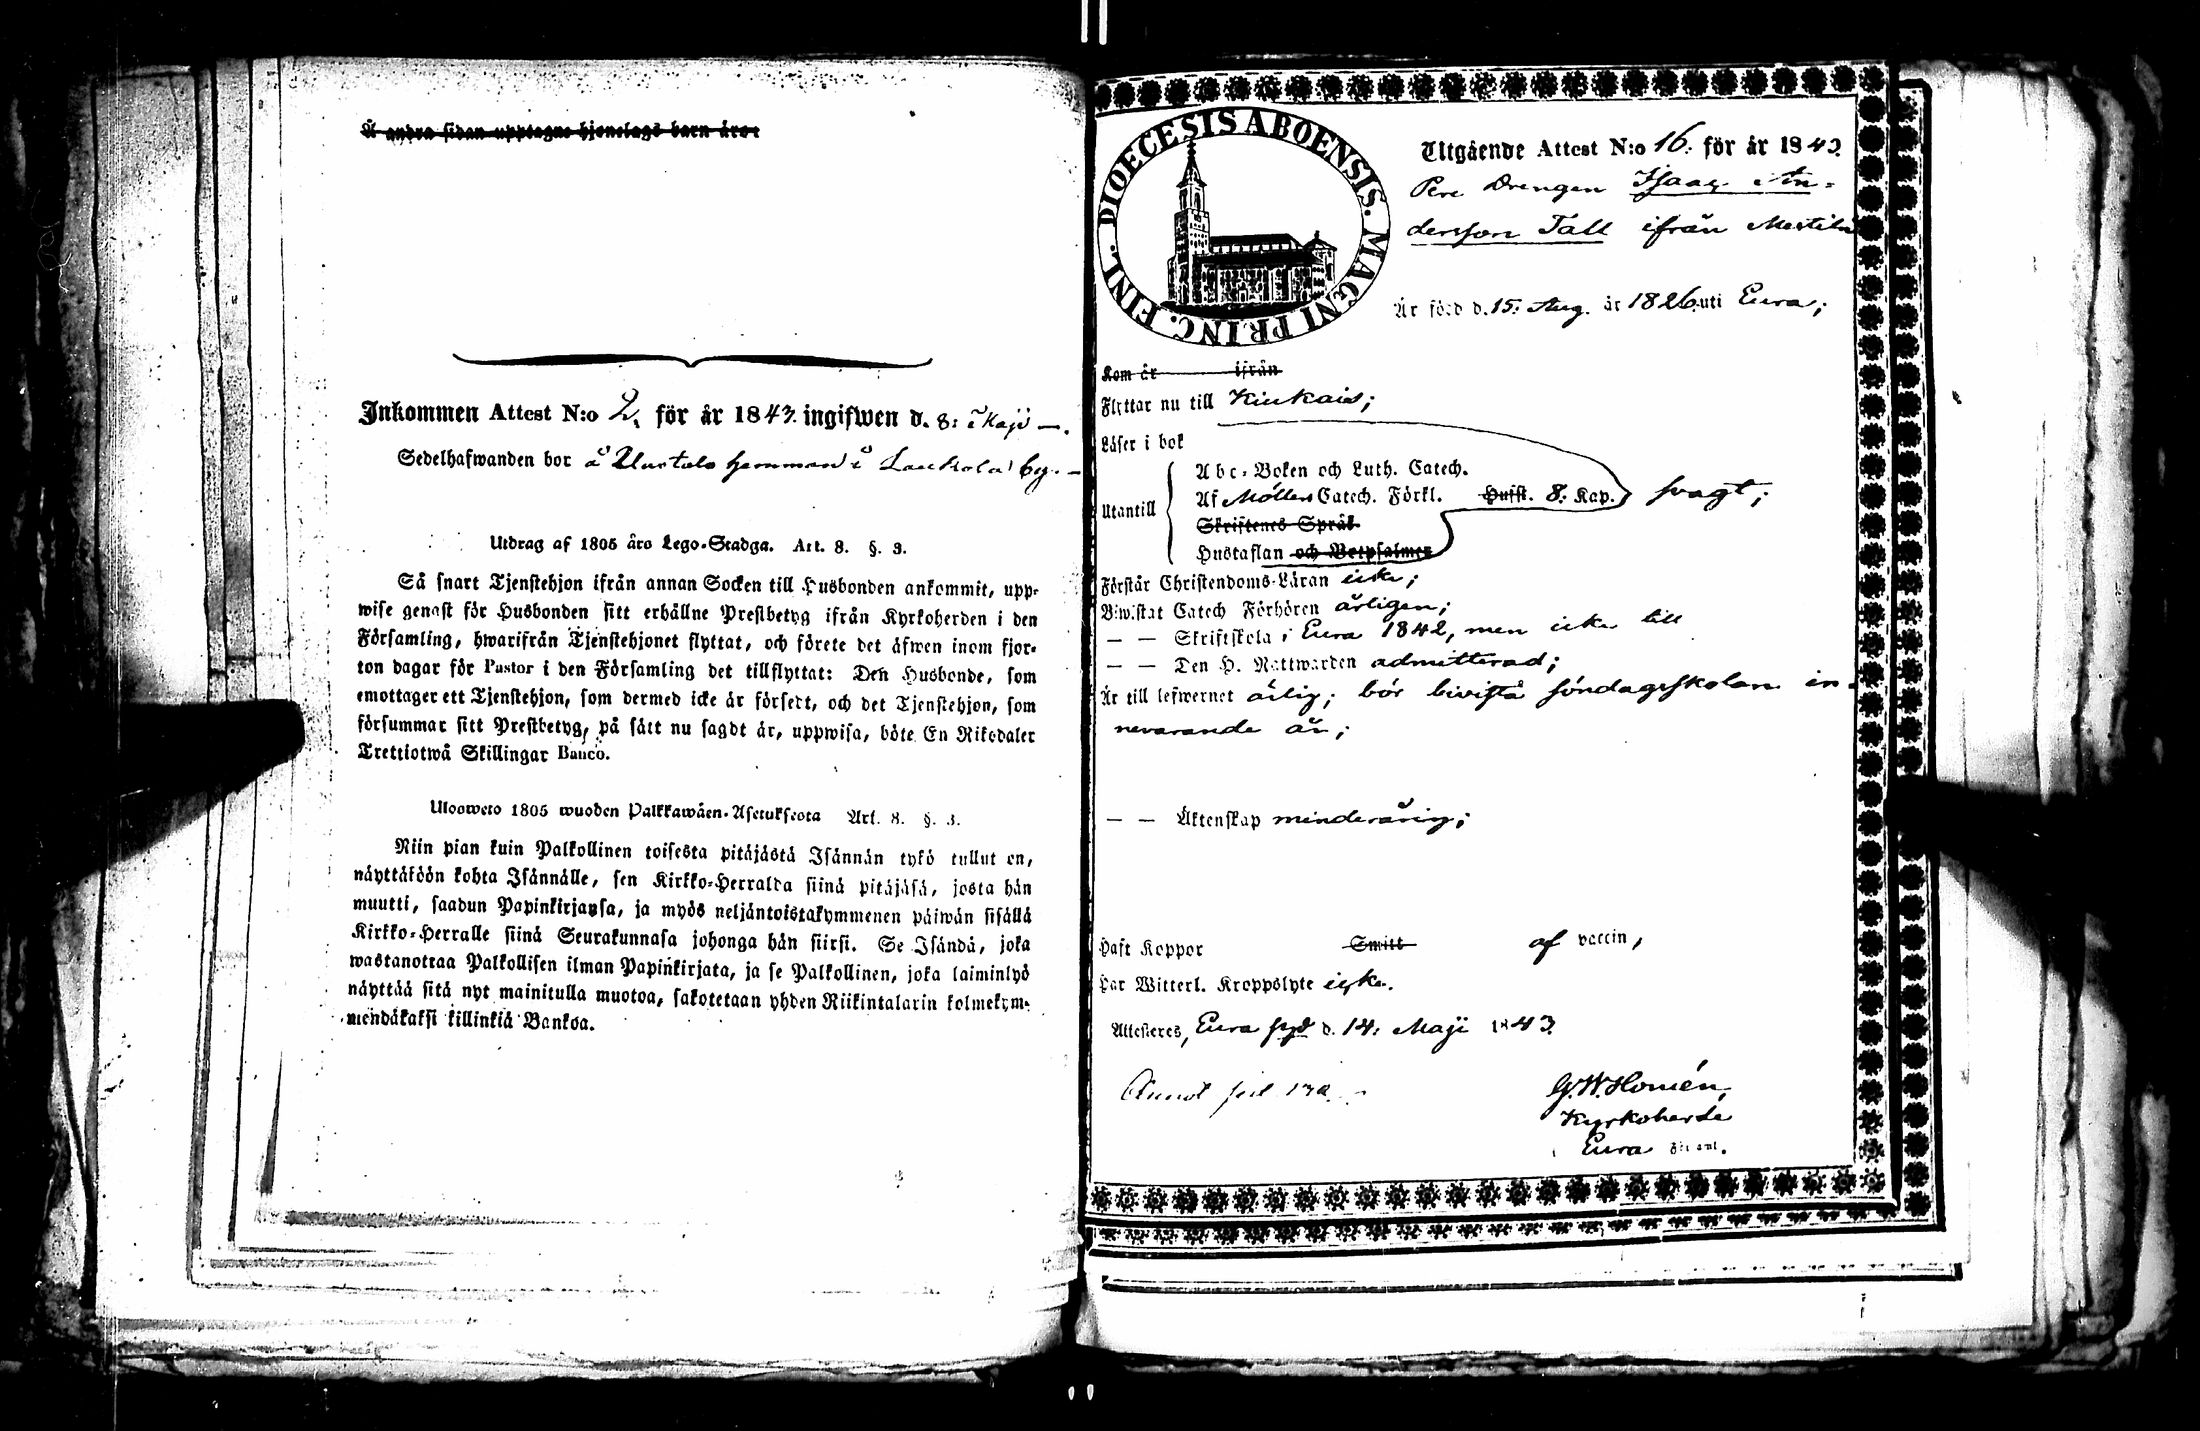 Å andra sidan upptagne hjonelags barn äro:
Inkommen Attest N:o 2. för år 1843. ingifwen d. 8: Maji —.
Sedelhafwanden bor å Uustalo hemman i Laukola by. —
Utdrag af 1805 års Lego-Stadga. Art. 8. §. 3.
Så snart Tjenstehjon ifrån annan Socken till Husbonden ankommit, upp-
wise genast för Husbonden sitt erhållne Prestbetyg ifrån Kyrkoherden i den
Församling, hwarifrån Tjenstehjonet flyttat, och förete det äfwen inom fjor-
ton dagar för Pastor i den Församling det tillflyttat: Den Husbonde, som
emottager ett Tjenstehjon, som dermed icke är försedt, och det Tjenstehjon, som
försummar sitt Prestbetyg, på sätt nu sagdt är, uppwisa, böte En Riksdaler
Trettiotwå Skillingar Banco.
Ulosweto 1805 wuoden Palkkawäen-Asetuksesta Art. 8. §. 3.
Niin pian kuin Palkollinen toisesta pitäjästä Isännän tykö tullut on,
näyttäköön kohta Isännälle, sen Kirkko-Herralda siinä pitäjäsä, josta hän
muutti, saadun Papinkirjansa, ja myös neljäntoistakymmenen päiwän sisällä
Kirkko-Herralle siinä Seurakunnasa johonga hän siirsi. Se Isändä, joka
wastanottaa Palkollisen ilman Papinkirjata, ja se Palkollinen, joka laiminlyö
näyttää sitä nyt mainitulla muotoa, sakotetaan yhden Riikintalarin kolmekym-
mendäkaksi killinkiä Bankoa.
DIOECESIS ABOENSIS. MAGNI PRINC. FINL.
Utgående Attest N:o 16. för år 1843.
Pere Drengen Isaac An-
dersson Tall ifrån Mestilä
Är född d. 15: Aug. år 1826 uti Eura;
Kom år ifrån
Flyttar nu till Kiukais;
Läser i bok
Abc-Boken och Luth. Catech.
Utantill Af Möllers Catech. Förkl. Husst. 8: Kap. svagt;
Skriftenes Språk
Hustaflan och Botpsalmer
Förstår Christendoms-Läran icke;
Biwistat Catech Förhören årligen;
— — Skriftskola i Eura 1842, men icke till
— — Den H. Nattwarden admitterad;
Är till lefwernet ärlig; bör bivista söndagsskolan in-
nevarande år;
— — Äktenskap minderårig;
Haft Koppor Smitt af vaccin,
Har Witterl. Kroppslyte icke.
Attesteres, Eura d. 14: Maji 1843.
G.W. Homén,
Kyrkoherde
Eura